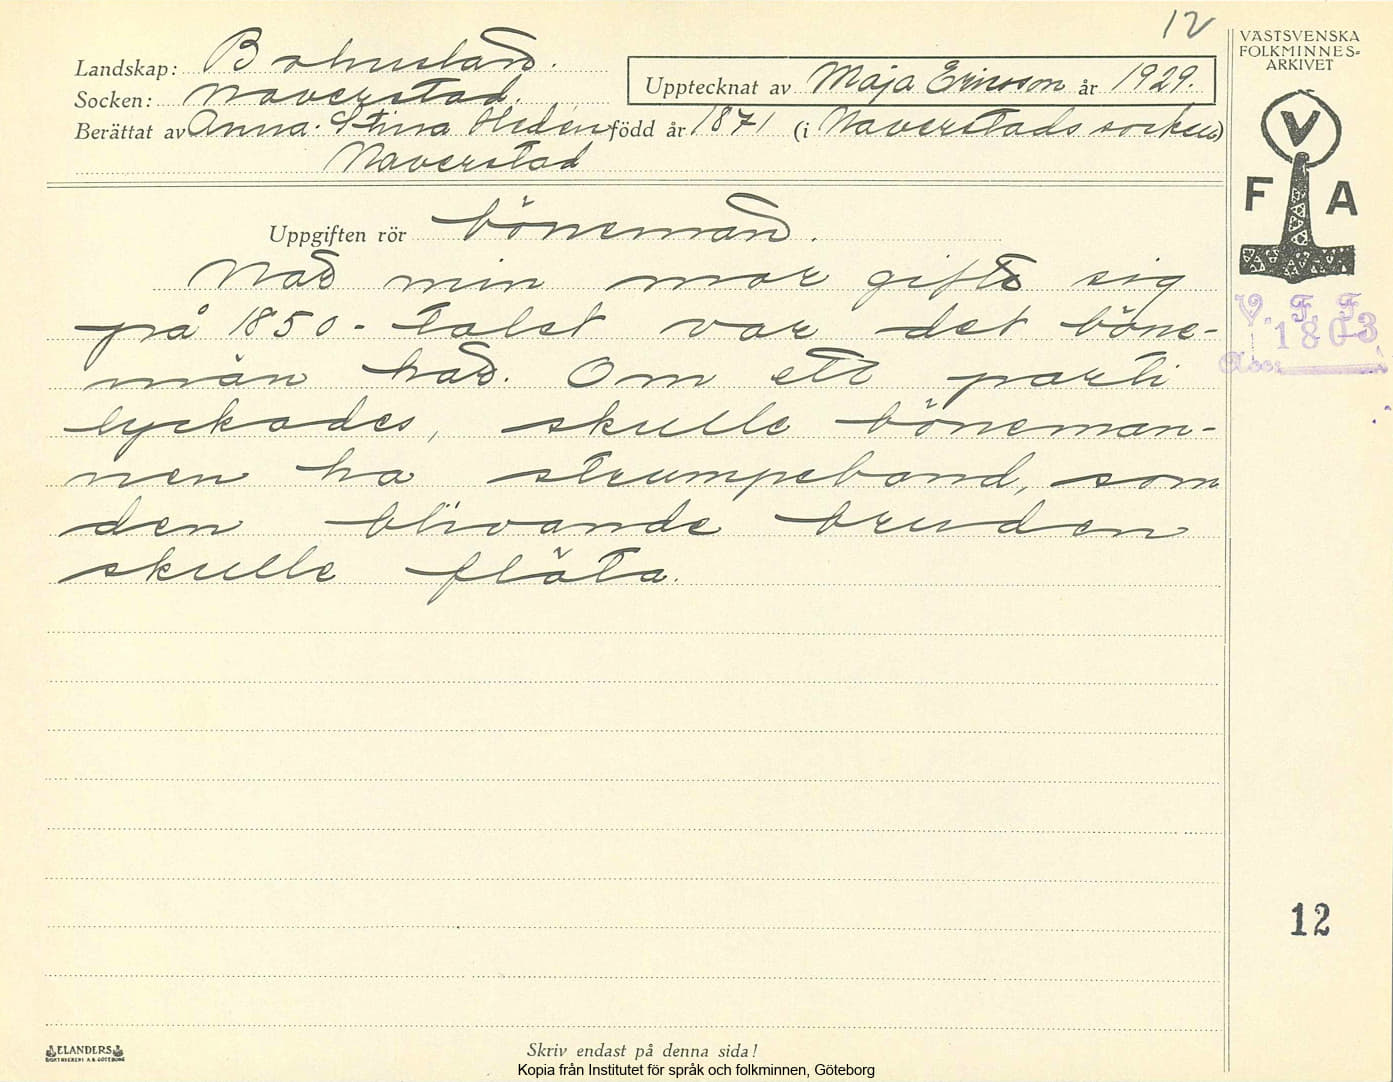 12
VÄSTSVENSKA
FOLKMINNES-
ARKIVET
Landskap: Bohuslän.
Socken: Naverstad.
Upptecknat av Maja Ericson år 1929.
Berättat av Anna-Stina Hedén född år 1871 (i Naverstads socken)
Naverstad
V
F A
Uppgiften rör böneman.
När min mor gifte sig
på 1850-talet var det böne-
män här. Om ett parti
lyckades, skulle böneman-
nen ha strumpeband, som
den blivande bruden
skulle fläta.
V. F. F.
1803
Acc:
12
ELANDERS
BOKTRYCKERI A.B. GÖTEBORG
Skriv endast på denna sida!
Kopia från Institutet för språk och folkminnen, Göteborg